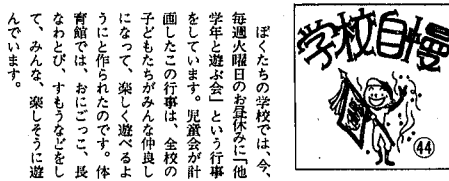 学校自慢
㊹
ぼくたちの学校では、今、
毎週火曜日のお昼休みに「他
学年と遊ぶ会」という行事
をしています。児童会が計
画したこの行事は、全校の
子どもたちがみんな仲良し
になって、楽しく遊べるよ
うにと作られたのです。体
育館では、おにごっこ、長
なわとび、すもうなどをし
て、みんな、楽しそうに遊
んでいます。